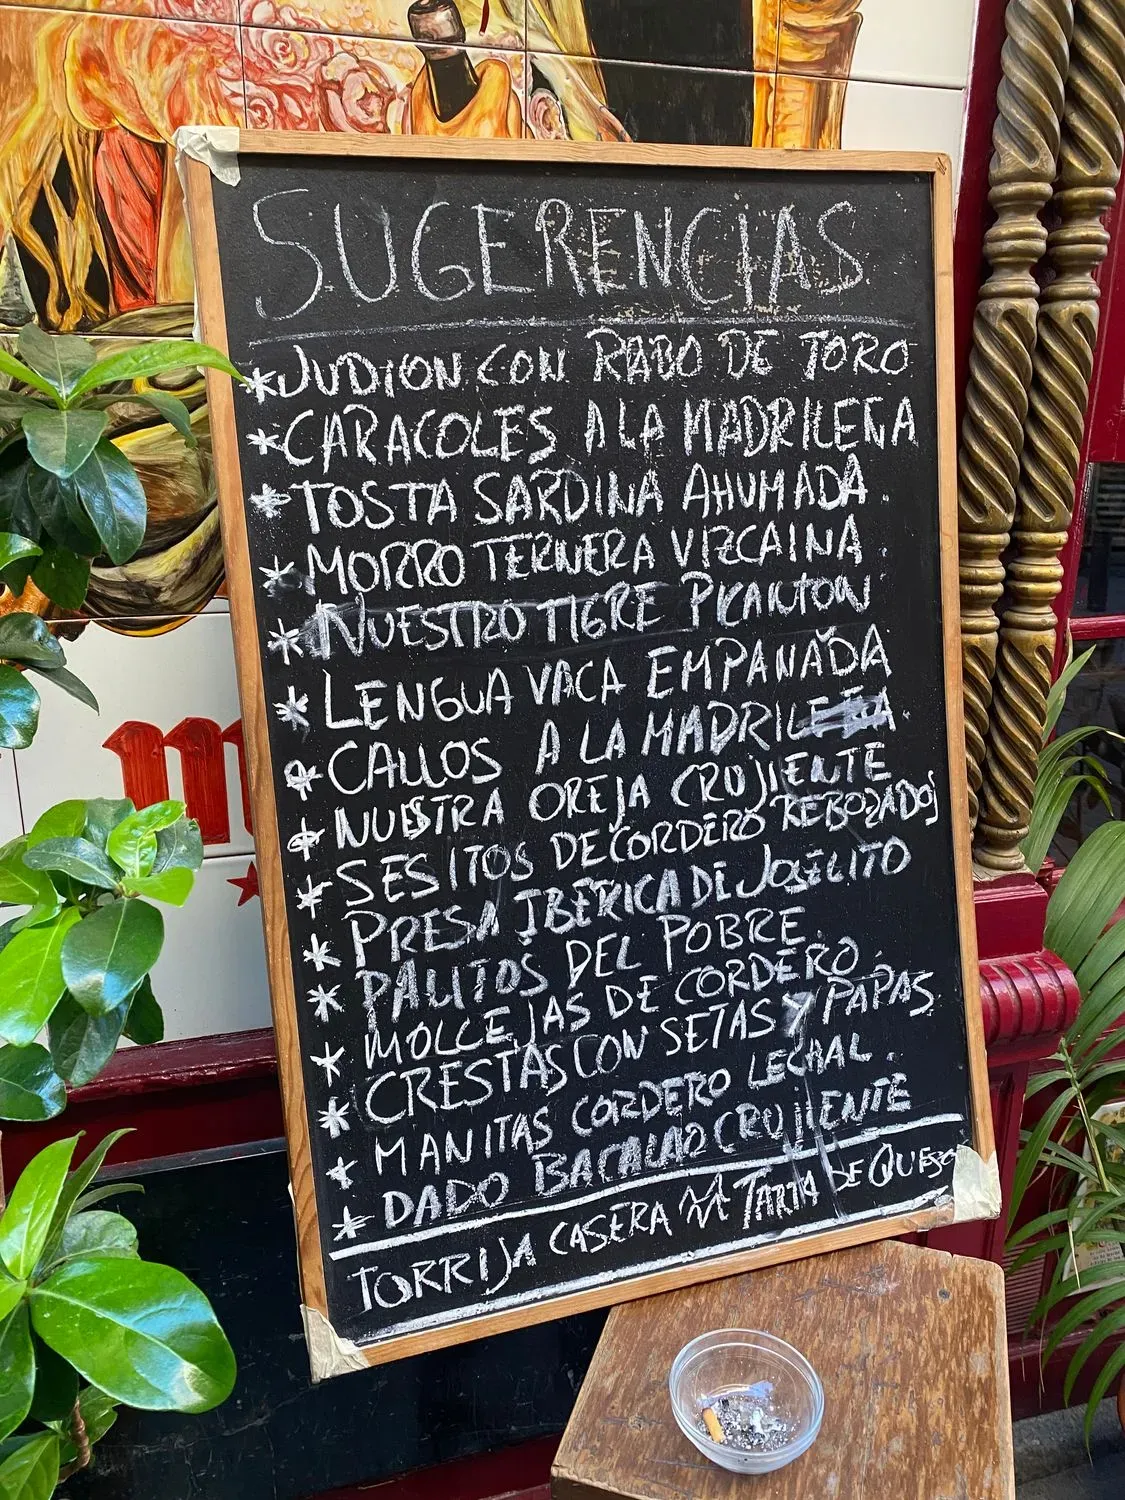 SUGERENCIAS
*JUDION CON RABO DE TORO
*CARACOLES A LA MADRILEÑA
*TOSTA SARDINA AHUMADA.
*MORRO TERNERA VIZCAINA
*NUESTRO TIGRE PICANTON
*LENGUA VACA EMPANADA
*CALLOS A LA MADRILEÑA.
*NUESTRA OREJA CRUJIENTE
*SESITOS DE CORDERO REBOZADOS
*PRESA IBERICA DE JOSELITO
*PALITOS DEL POBRE.
*MOLLEJAS DE CORDERO.
*CRESTAS CON SETAS Y PAPAS.
*MANITAS CORDERO LECHAL.
*DADO BACALAO CRUJIENTE
TORRIJA CASERA TARTA DE QUESO
m